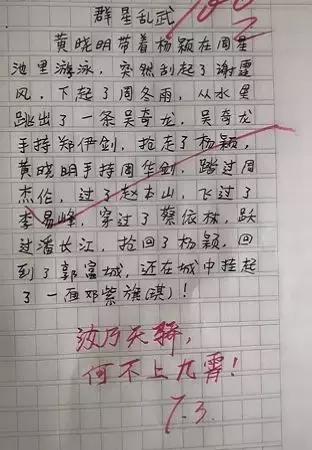 群星乱武
黄晓明带着杨颖在周星
池里游泳，突然刮起了谢霆
风，下起了周冬雨，从水里
跳出了一条吴奇龙，吴奇龙
手持郑伊剑，抢走了杨颖，
黄晓明手持周华剑，踏过周
杰伦，过了赵本山，飞过了
李易峰，穿过了蔡依林，跃
过潘长江，抢回了杨颖，回
到了郭富城，还在城中挂起
了一面邓紫旗(琪)！
汝乃天骄，
何不上九霄！
7.3.